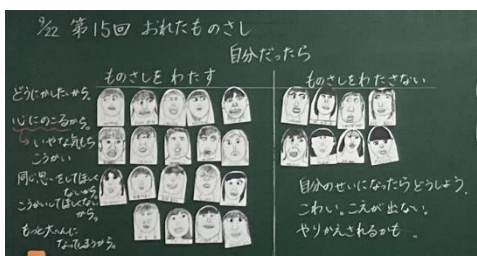 9/22 第15回 おれたものさし
自分だったら
ものさしをわたす
どうにかしたいから。
心にのこるから。
→いやな気もち
こうかい
同じ思いをしてほしく
ないから。
こうかいしてほしくない
から。
もっと大へんに
なってしまうから。
ものさしをわたさない
自分のせいになったらどうしよう。
こわい。こえが出ない。
やりかえされるかも。